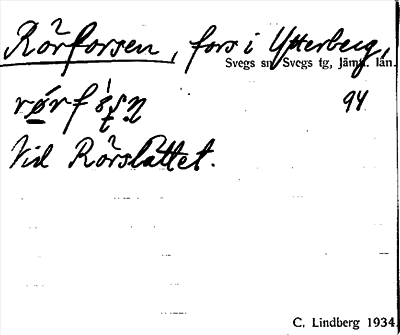 Rörforsen, fors i Ytterberg,
Svegs sn, Svegs tg, Jämtl. län.
94
Vid Rörslåttet.
C. Lindberg 1934